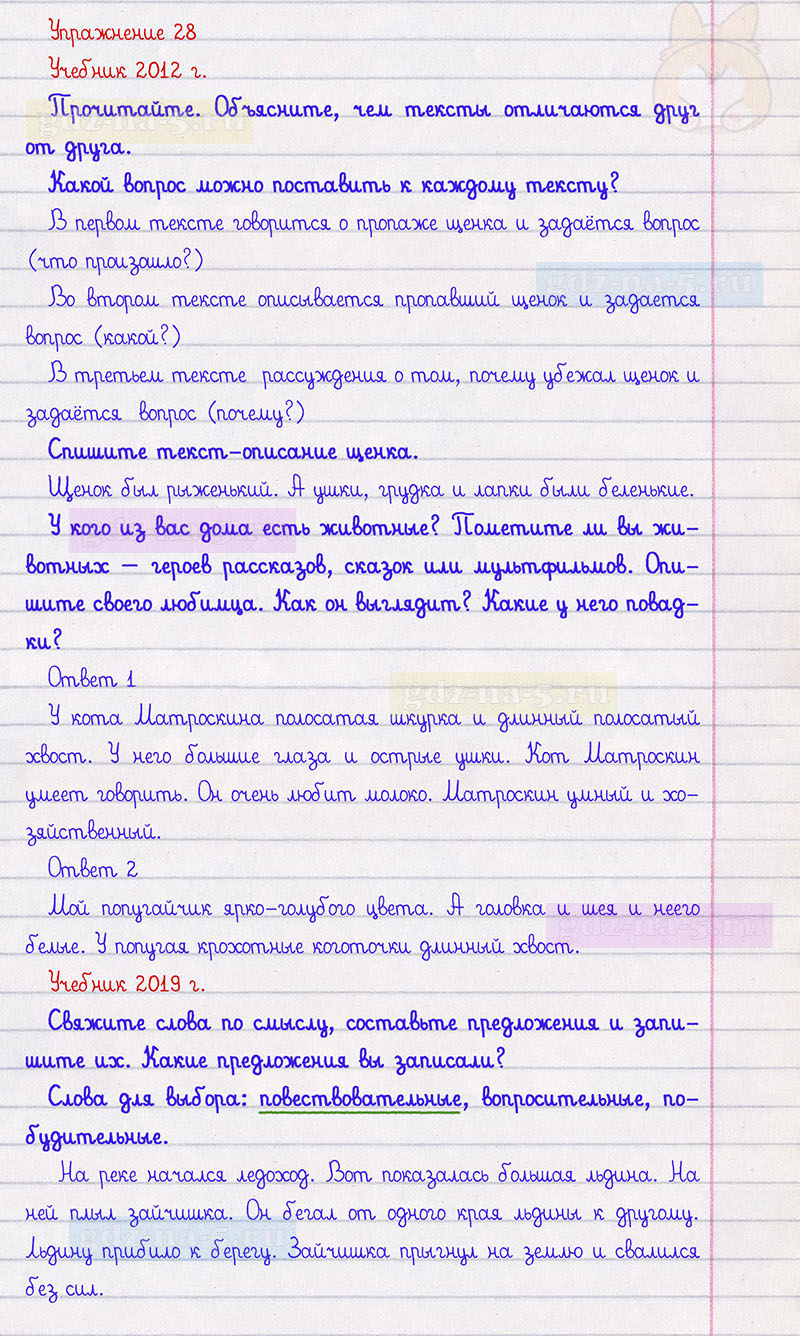 Упражнение 28
Учебник 2012 г.
Прочитайте. Объясните, чем тексты отличаются друг
gdz-na-5.ru
от друга.
Какой вопрос можно поставить к каждому тексту?
В первом тексте говорится о пропаже щенка и задаётся вопрос
(что произошло?)
gdz-na-5.ru
Во втором тексте описывается пропавший щенок и задается
вопрос (какой?)
В третьем тексте рассуждения о том, почему убежал щенок и
задаётся вопрос (почему?)
Спишите текст-описание щенка.
Щенок был рыженький. А ушки, грудка и лапки были беленькие.
У кого из вас дома есть животные? Пометите ли вы жи-
gdz-na-5.ru
вотных — героев рассказов, сказок или мультфильмов. Опи-
шите своего любимца. Как он выглядит? Какие у него повад-
ки?
Ответ 1
gdz-na-5.ru
У кота Матроскина полосатая шкурка и длинный полосатый
хвост. У него большие глаза и острые ушки. Кот Матроскин
умеет говорить. Он очень любит молоко. Матроскин умный и хо-
зяйственный.
Ответ 2
Мой попугайчик ярко-голубого цвета. А головка и шея и неего
gdz-na-5.ru
белые. У попугая крохотные коготочки длинный хвост.
Учебник 2019 г.
Свяжите слова по смыслу, составьте предложения и запи-
шите их. Какие предложения вы записали?
Слова для выбора: повествовательные, вопросительные, по-
будительные.
На реке начался ледоход. Вот показалась большая льдина. На
ней плыл зайчишка. Он бегал от одного края льдины к другому.
gdz-na-5.ru
Льдину прибило к берегу. Зайчишка прыгнул на землю и свалился
без сил.